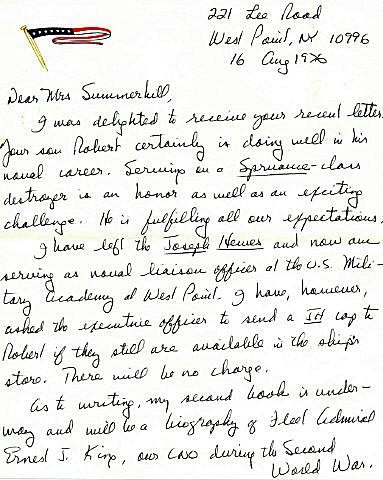 221 Lee Road
West Point, NY 10996
16 Aug 1976
Dear Mrs Summerhill,
I was delighted to receive your recent letter.
Your son Robert certainly is doing well in his
naval career. Serving on a Spruance-class
destroyer is an honor as well as an exciting
challenge. He is fulfilling all our expectations.
I have left the Joseph Hewes and now am
serving as naval liaison officer at the U.S. Mili-
tary Academy at West Point. I have, however,
asked the executive officer to send a JH cap to
Robert if they still are available in the ship's
store. There will be no charge.
As to writing, my second book is under-
way and will be a biography of Fleet Admiral
Ernest J. King, our CNO during the Second
World War.